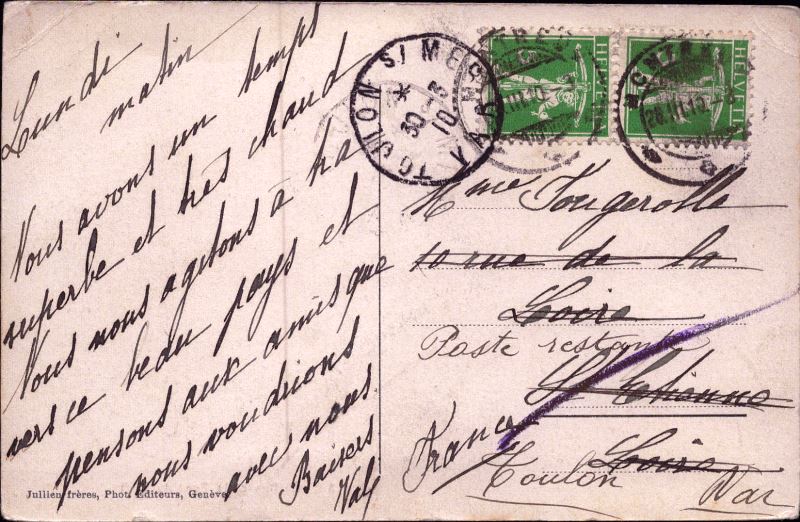 Lundi
matin
Nous avons un temps
superbe et très chaud
Nous nous agitons à tra
vers ce beau pays et
pensons aux amis que
nous voudrions
avec nous.
Baisers
Jullien frères, Phot. Editeurs, Genève
TOULON S/ MER
* 30 -3 10
VAR
HELVETIA
HELVETIA
MONTREUX
28.III.10
Mme Fougerolle
10 rue de la
Loire
Poste restante
St Etienne
France Loire
Toulon Var